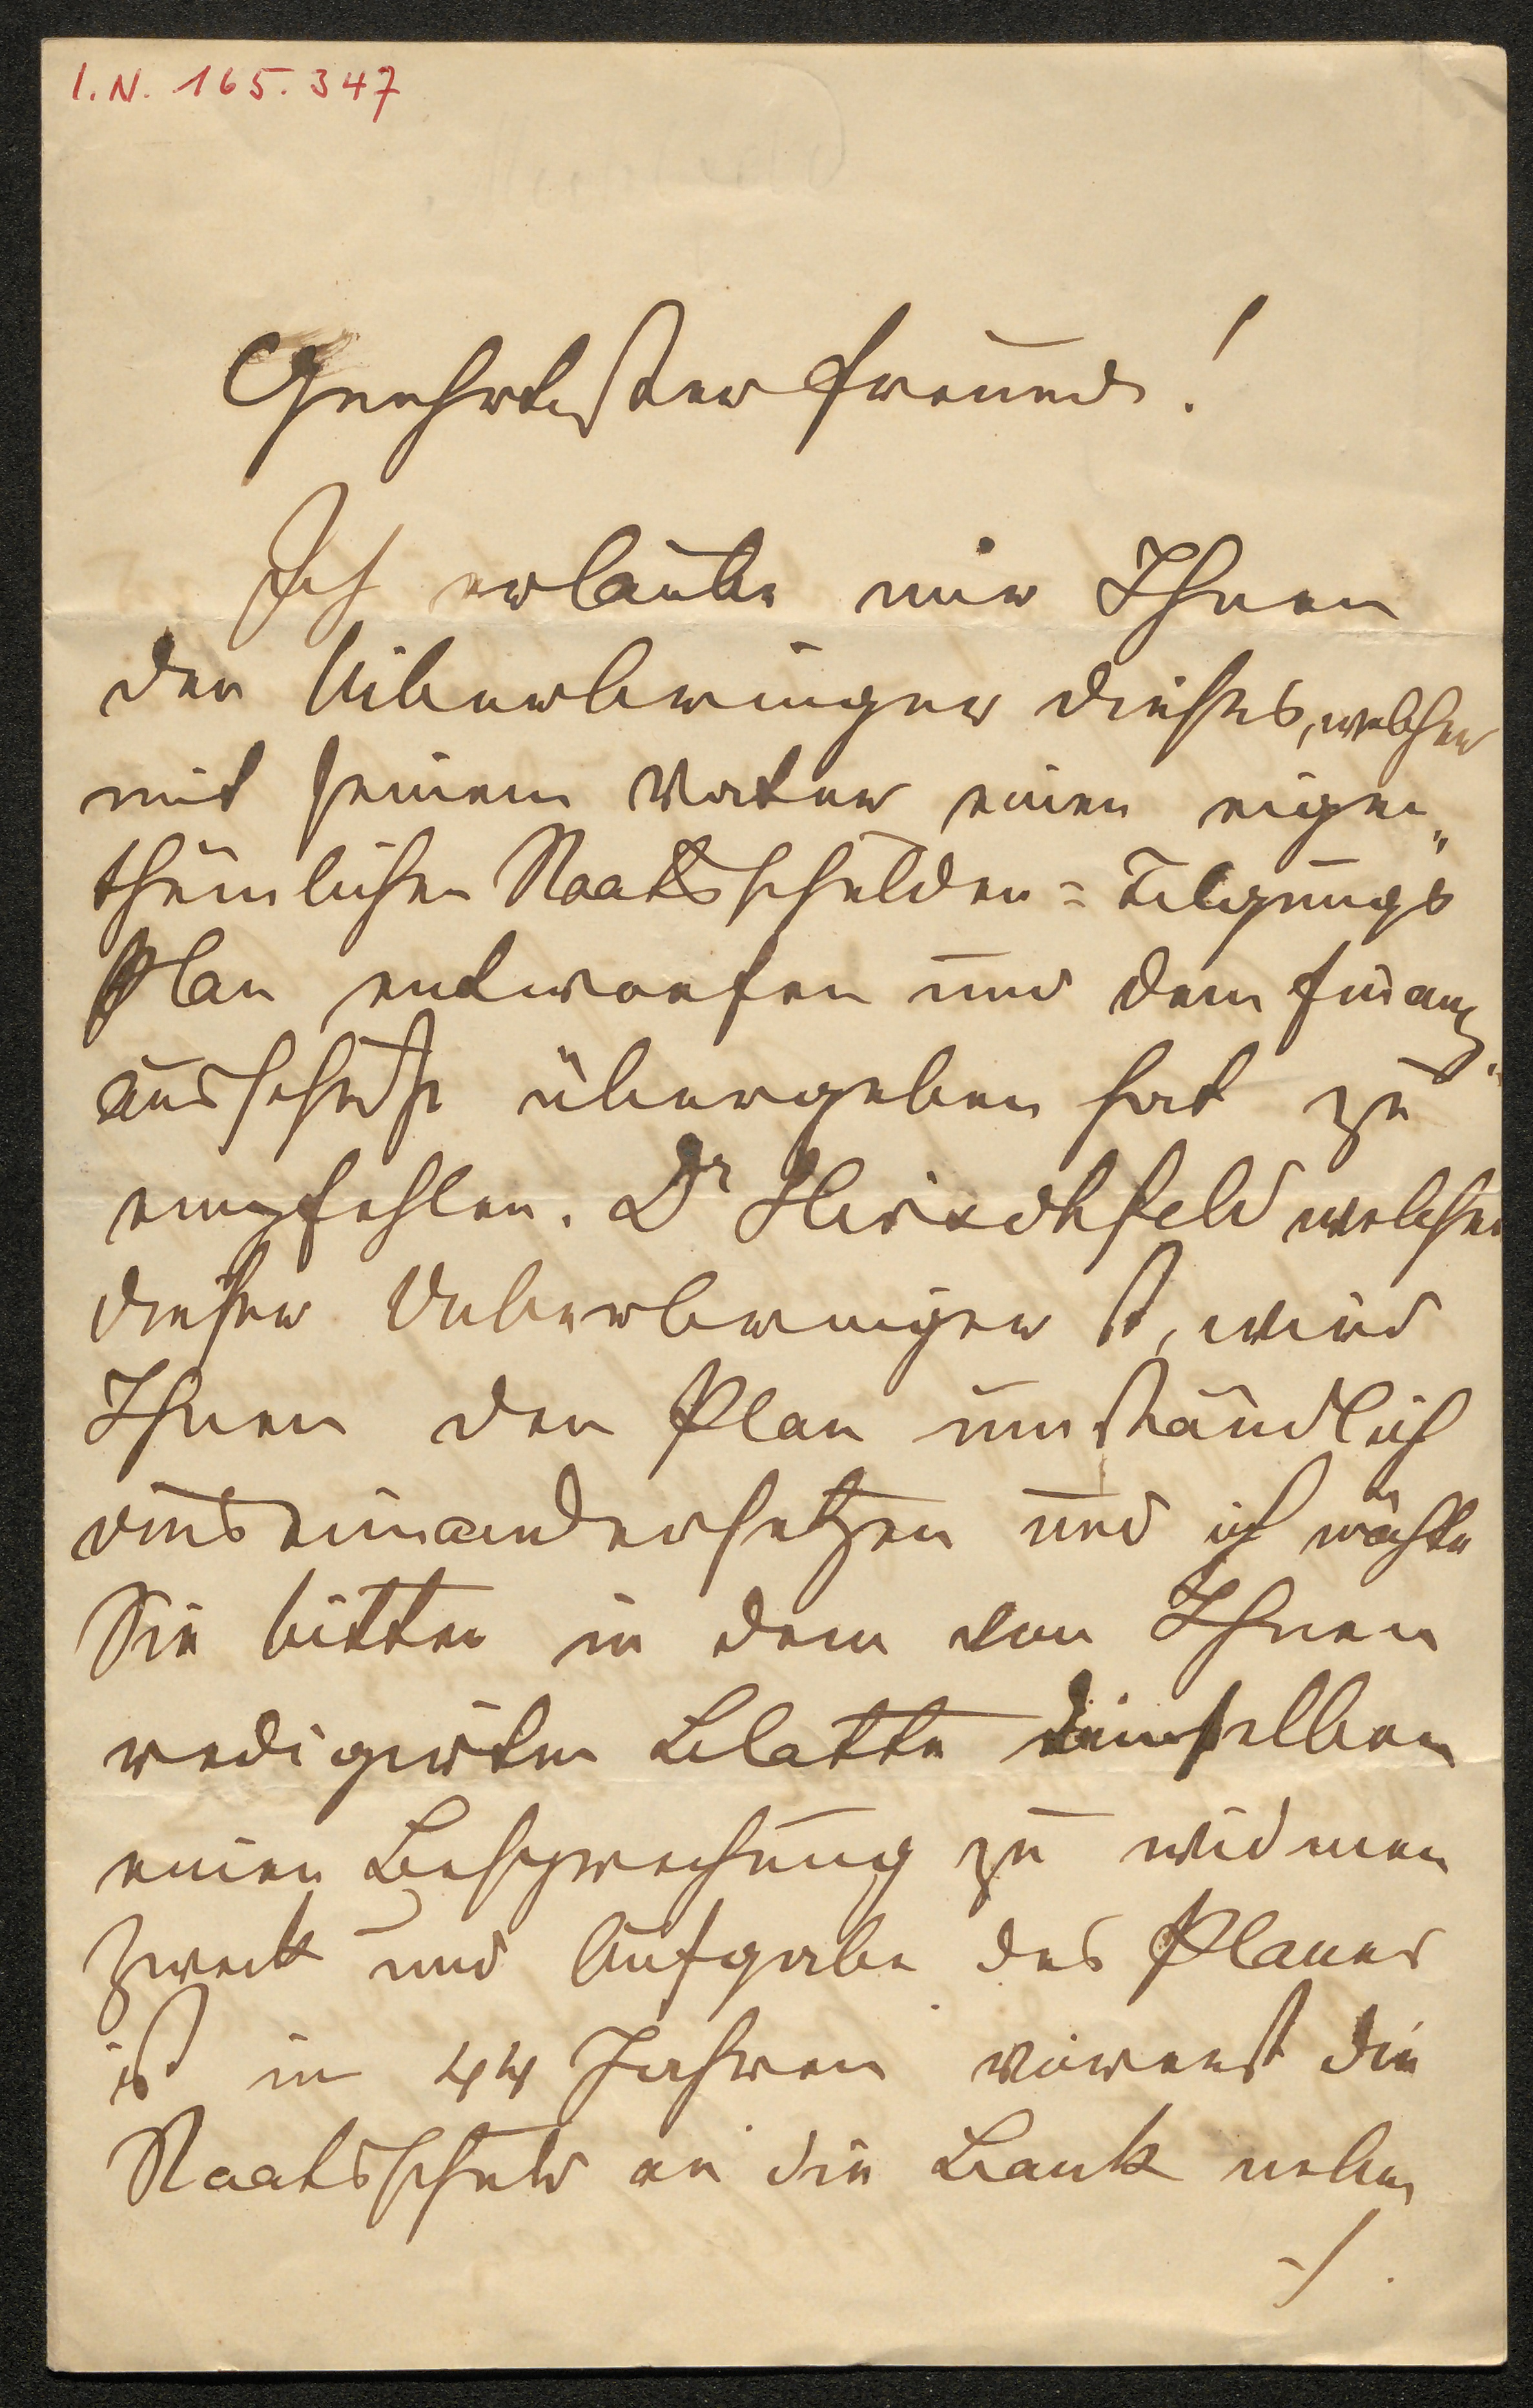 I. N. 165.347
Geehrtester Freund!
Ich erlaube mir Ihnen
den Uiberbringer dieses, welcher
mit seinem Vater einen eigen„
thümlichen Staatsschulden=Tilgungs
Plan entworfen und dem Finanz„
ausschuße übergeben hat zu
empfehlen. Dr Hirschfeld welcher
dieser Ueberbringer ist, wird
Ihnen den Plan umständlich
auseinandersetzen und ich möchte
Sie bitten in dem von Ihnen
redigirten Blatte demselben
einen Besprechung zu widmen
Zweck und Aufgabe des Planes
ist in 44 Jahren vorerst die
Staatsschuld an die Bank neben
./.